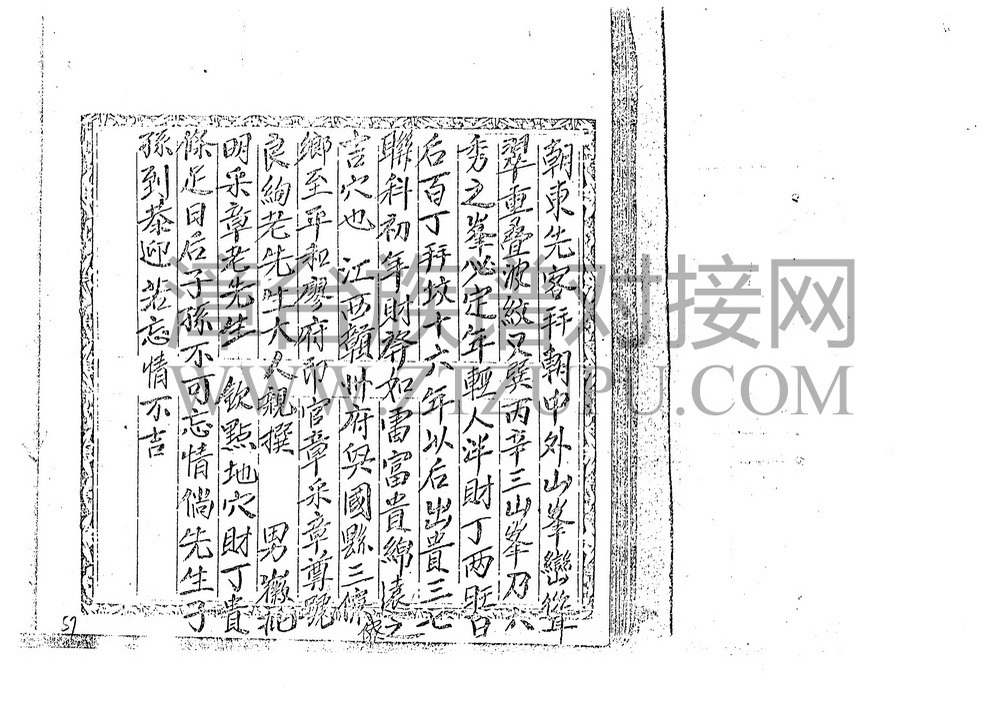 朝東先客拜朝中外山峯巒聳
翠重叠波紋又巽丙辛三山峯乃六
秀之峯必定年輕人泮財丁兩旺日
后百丁拜坟十六年以后出貴三七
聯科初年財發如雷富貴綿遠之
吉穴也 江西贛州府興國縣三僚
鄉至平和廖府印官章采章尊號
良絢老先生大人親撰 男徽
明采章老先生 欽點地穴財丁貴
條足日后子孫不可忘情倘先生子
孫到恭迎若忘情不吉
僚
57
漳台族譜对接网
WWW.ZTZUPU.COM